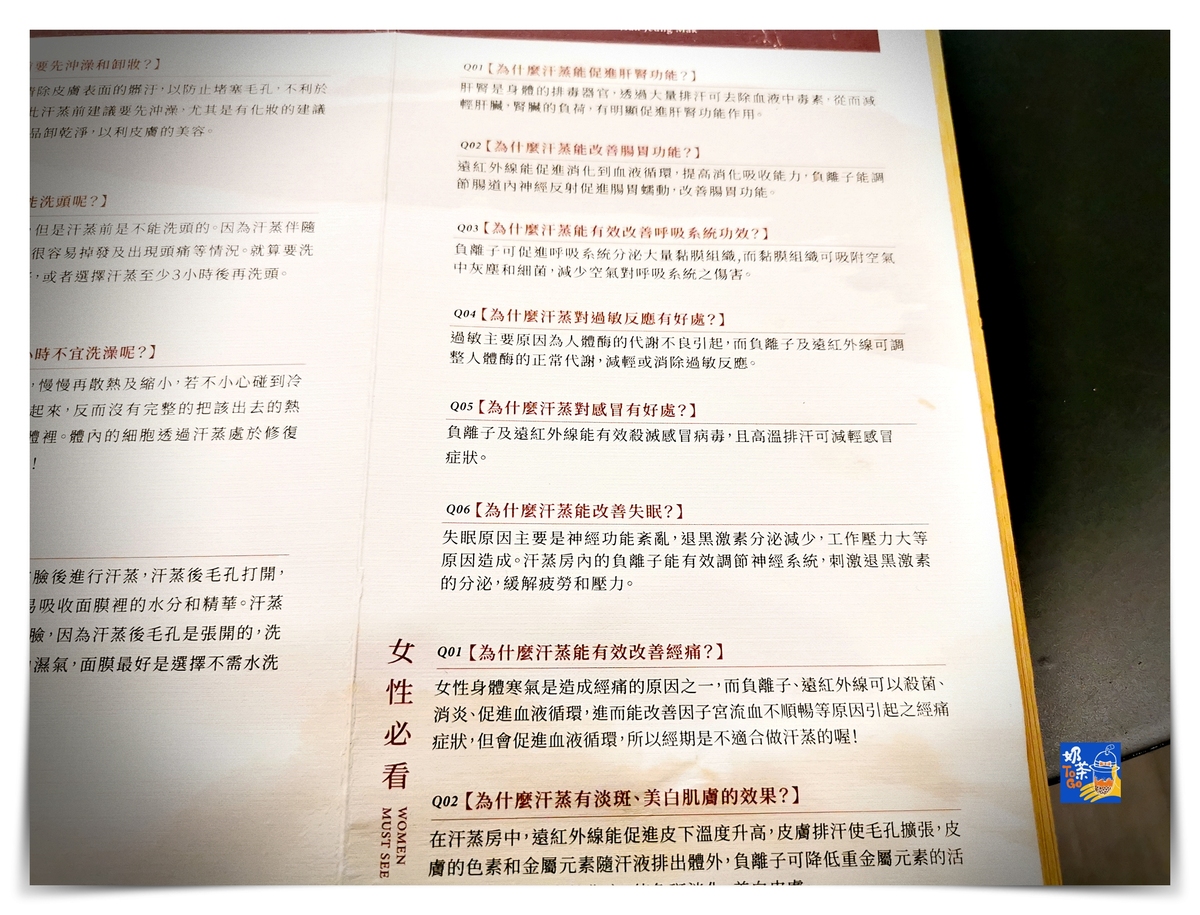 要先沖澡和卸妝?】
除皮膚表面的髒汙,以防止堵塞毛孔,不利於
此汗蒸前建議要先沖澡,尤其是有化妝的建議
品卸乾淨,以利皮膚的美容。
洗頭呢?】
但是汗蒸前是不能洗頭的。因為汗蒸伴隨
很容易掉發及出現頭痛等情況。就算要洗
,或者選擇汗蒸至少3小時後再洗頭。
小時不宜洗澡呢?】
,慢慢再散熱及縮小,若不小心碰到冷
起來,反而沒有完整的把該出去的熱
體裡。體內的細胞透過汗蒸處於修復
!
臉後進行汗蒸,汗蒸後毛孔打開,
易吸收面膜裡的水分和精華。汗蒸
臉,因為汗蒸後毛孔是張開的,洗
濕氣,面膜最好是選擇不需水洗
Q01【為什麼汗蒸能促進肝腎功能?】
肝腎是身體的排毒器官,透過大量排汗可去除血液中毒素,從而減
輕肝臟,腎臟的負荷,有明顯促進肝腎功能作用。
Q02【為什麼汗蒸能改善腸胃功能?】
遠紅外線能促進消化到血液循環,提高消化吸收能力,負離子能調
節腸道內神經反射促進腸胃蠕動,改善腸胃功能。
Q03【為什麼汗蒸能有效改善呼吸系統功效?】
負離子可促進呼吸系統分泌大量黏膜組織,而黏膜組織可吸附空氣
中灰塵和細菌,減少空氣對呼吸系統之傷害。
Q04【為什麼汗蒸對過敏反應有好處?】
過敏主要原因為人體酶的代謝不良引起,而負離子及遠紅外線可調
整人體酶的正常代謝,減輕或消除過敏反應。
Q05【為什麼汗蒸對感冒有好處?】
負離子及遠紅外線能有效殺滅感冒病毒,且高溫排汗可減輕感冒
症狀。
Q06【為什麼汗蒸能改善失眠?】
失眠原因主要是神經功能紊亂,退黑激素分泌減少,工作壓力大等
原因造成。汗蒸房內的負離子能有效調節神經系統,刺激退黑激素
的分泌,緩解疲勞和壓力。
女性必看
WOMEN
MUST SEE
Q01【為什麼汗蒸能有效改善經痛?】
女性身體寒氣是造成經痛的原因之一,而負離子、遠紅外線可以殺菌、
消炎、促進血液循環,進而能改善因子宮流血不順暢等原因引起之經痛
症狀,但會促進血液循環,所以經期是不適合做汗蒸的喔!
Q02【為什麼汗蒸有淡斑、美白肌膚的效果?】
在汗蒸房中,遠紅外線能促進皮下溫度升高,皮膚排汗使毛孔擴張,皮
膚的色素和金屬元素隨汗液排出體外,負離子可降低重金屬元素的活
奶茶
ToGo